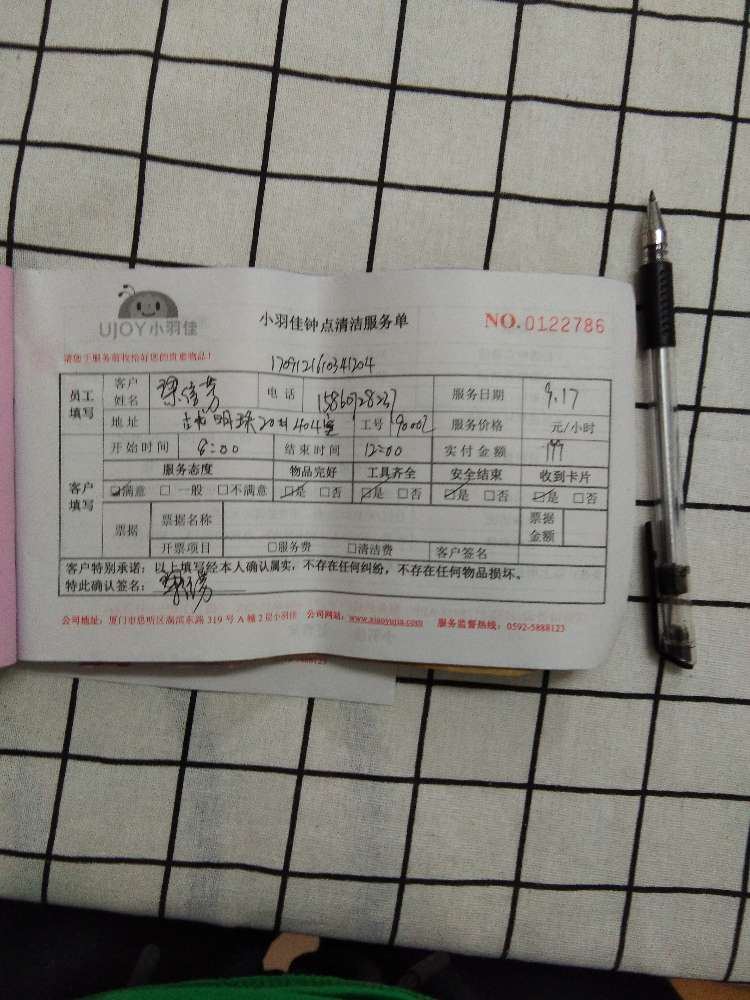 UJOY小羽佳
小羽佳钟点清洁服务单
NO.0122786
请您于服务前收拾好您的贵重物品！
员工填写 客户姓名 电话 服务日期 9.17
地址 明珠 404室 工号 服务价格 元/小时
开始时间 8:00 结束时间 12:00 实付金额
客户填写 服务态度 物品完好 工具齐全 安全结束 收到卡片
☑满意 □一般 □不满意 ☑是 □否 ☑是 □否 ☑是 □否 ☑是 □否
票据 票据名称 票据金额
开票项目 □服务费 □清洁费 客户签名
客户特别承诺：以上填写经本人确认属实，不存在任何纠纷，不存在任何物品损坏。
特此确认签名：
公司地址：厦门市思明区湖滨东路 319 号 A 幢 2 层小羽佳 公司网站：www.xiaoyujia.com 服务监督热线：0592-5888123